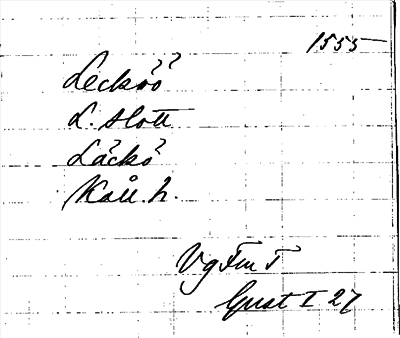 1555
Lecköö
L. slott
Läckö
Kåll. h.
VgFmT
Gust I 27